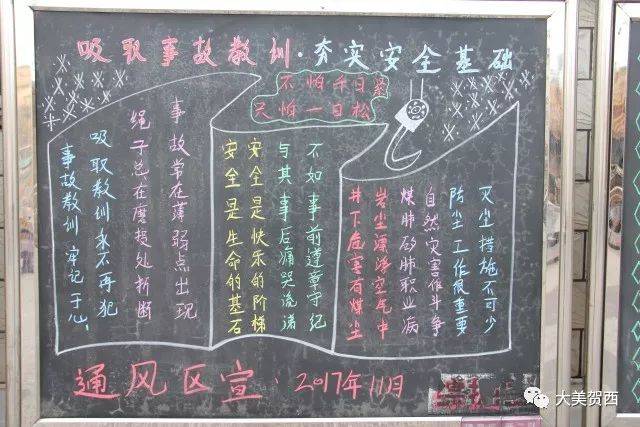 吸取事故教训·夯实安全基础
不怕千日紧
只怕一日松
灭尘措施不可少
防尘工作很重要
自然灾害作斗争
煤肺矽肺职业病
岩尘漂浮空气中
井下危害有煤尘
不如事前遵章守纪
与其事后痛哭流涕
安全是快乐的阶梯
安全是生命的基石
事故常在薄弱点出现
绳子总在磨损处折断
吸取教训永不再犯
事故教训牢记于心
通风区宣·2017年11月
大美贺西